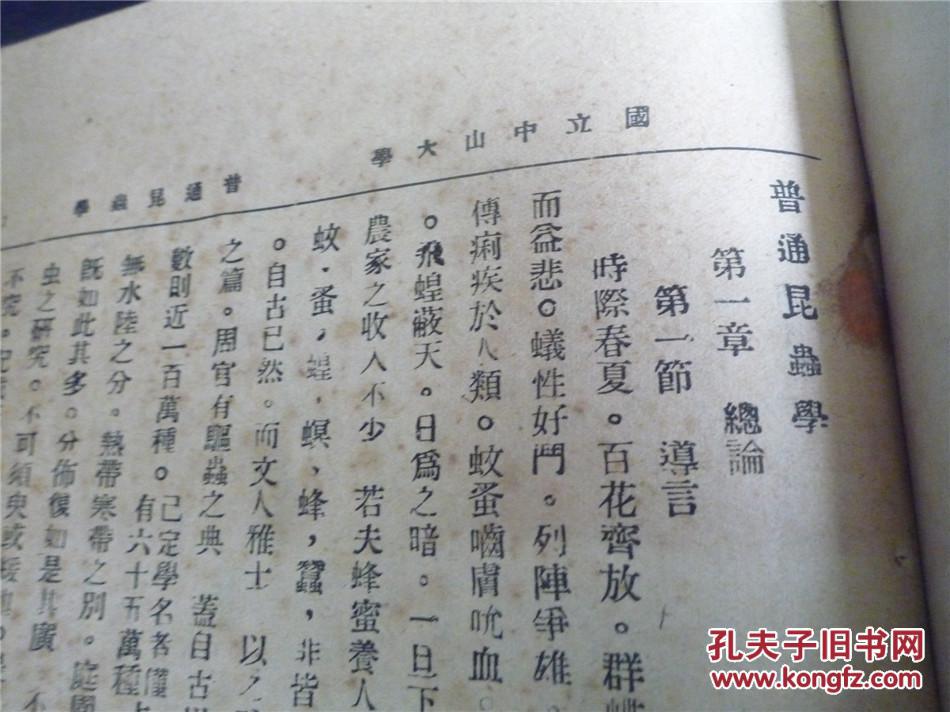 國立中山大學
普通昆蟲學
普通昆蟲學
第一章 總論
第一節 導言
時際春夏。百花齊放。群
而益悲。蟻性好鬥。列陣爭雄。
傳痢疾於人類。蚊蚤嚙膚吮血。
。飛蝗蔽天。日爲之暗。一旦下
農家之收入不少 若夫蜂蜜養人
蚊．蚤，蝗，螟，蜂，蠶，非皆
。自古已然。而文人雅士 以
之篇。周官有驅蟲之典 蓋自古
數則近一百萬種。已定學名者僅
有六十五萬種
無水陸之分。熱帶寒帶之別。庭園
既如此其多。分佈復如是其廣
虫之研究。不可須臾或緩
不究。
孔夫子旧书网
www.kongfz.com